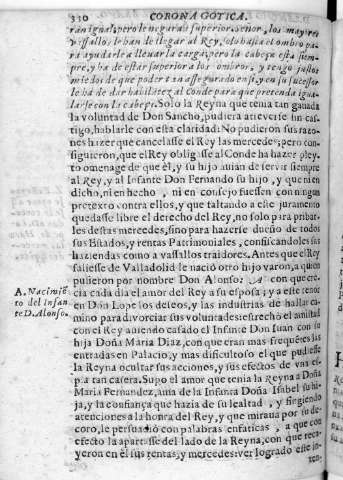 330 CORONA GOTICA.
ran igual; pero le negaràn superior. Señor, los mayores
vassallos se han de llegar al Rey, solo hasta el ombro pa-
ra ayudarle a llevar la carga; pero la cabeça està siem-
pre, y ha de estar superior a los ombros, y tengo justos
miedos de que poder tan assegurado en si, y en su sucessor
le ha de dar habilitez al Conde para que pretenda igua-
larse con la cabeça. Solo la Reyna que tenia tan ganada
la voluntad de Don Sancho, pudiera atreverse sin cas-
tigo, hablarle con esta claridad: No pudieron sus razo-
nes hazer que cancelasse el Rey las mercedes; pero con-
siguieron, que el Rey obligasse al Conde ha hazer pley-
to omenage de que èl, y su hijo avian de servir siempre
al Rey, y al Infante Don Fernando su hijo, y que ni en
dicho, ni en hecho, ni en consejo fuessen con ningun
pretexto contra ellos, y que faltando a este juramento
quedasse libre el derecho del Rey, no solo para privar-
les destas mercedes, sino para hazerse dueño de todos
sus Estados, y rentas Patrimoniales, confiscandoles sus
haziendas como a vassallos traidores. Antes que el Rey
saliesse de Valladolid le naciò otro hijo varon, a quien
pusieron por nombre Don Alonso: A con que cre-
cia cada dia el amor del Rey a su esposa; y a este tenor
en Don Lope los deseos, y las industrias de hallar ca-
mino para divorciar sus voluntades: estrechò el amistad
con el Rey aviendo casado el Infante Don Juan con su
hija Doña Maria Diaz, con que eran mas frequētes las
entradas en Palacio, y mas dificultoso el que pudiesse
la Reyna ocultar sus acciones, y sus efectos de vna es-
pia tan casera. Supo el amor que tenia la Reyna a Doña
Maria Fernandez, ama de la Infanta Doña Isabel su hi-
ja, y la confiança que hazia de su lealtad, y fingiendo
atenciones a la honra del Rey, y que miraua por su de-
coro, le persuadiò con palabras enfaticas, a que con
efecto la apartasse del lado de la Reyna, con que reca-
yeron en èl sus rentas, y mercedes: ver logrado este in-
ten-
A. Nacimiē-
to del Infan-
te D. Alonso.